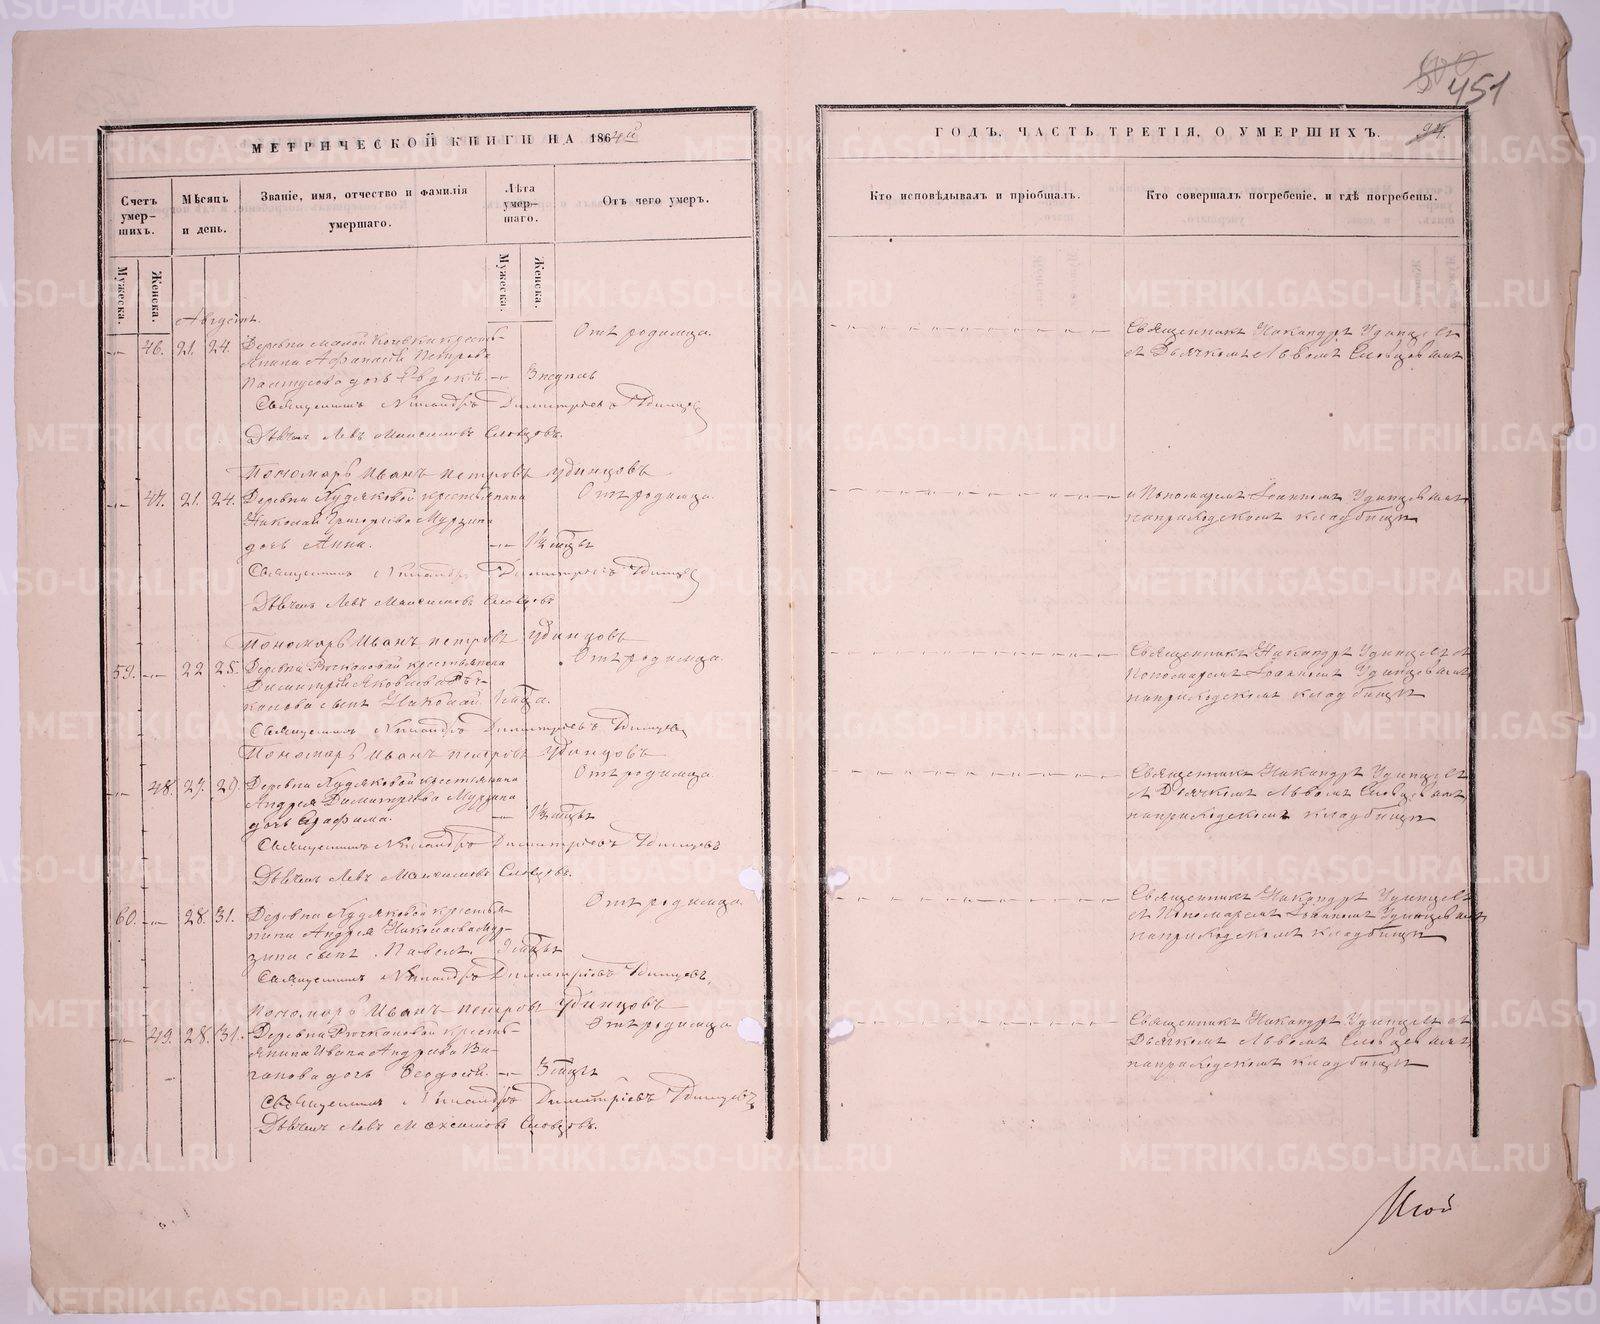 451
МЕТРИЧЕСКОЙ КНИГИ НА 1864й
ГОДЪ, ЧАСТЬ ТРЕТІЯ, О УМЕРШИХЪ.
Счетъ умер-шихъ.
Мѣсяцъ и день.
Званіе, имя, отчество и фамилія умершаго.
Лѣта умер-шаго.
Отъ чего умеръ.
Кто исповѣдывалъ и пріобщалъ.
Кто совершалъ погребеніе, и гдѣ погребены.
Мужеска.
Женска.
Мужеска.
Женска.
Августъ.
46. 21. 24. Деревни Малой кресть-
янина Афанасія Петрова
дочь Евдокія. 3 недѣль
Отъ родимца.
Священникъ Никандръ Удинцевъ
съ Дьячкомъ Львомъ Словцовымъ
Священникъ Никандръ Димитріевъ Удинцевъ
Дьячекъ Левъ Максимовъ Словцовъ.
Пономарь Иванъ Петровъ Удинцовъ
47. 21. 24. Деревни Худяковой крестьянина
Николая Григорьева Мурзина
дочь Анна.
Отъ родимца.
и Пономаремъ Іоанномъ Удинцевымъ
на приходскомъ кладбищѣ
Священникъ Никандръ Димитріевъ Удинцевъ
Дьячекъ Левъ Максимовъ Словцовъ
Пономарь Иванъ Петровъ Удинцовъ
59. 22 25. Деревни крестьянина
Димитрія Яковлева
сынъ Николай.
Отъ родимца.
Священникъ Никандръ Удинцевъ съ
Пономаремъ Іоанномъ Удинцевымъ
на приходскомъ кладбищѣ
Священникъ Никандръ Димитріевъ Удинцевъ
Пономарь Иванъ Петровъ Удинцовъ
48. 27. 29. Деревни Худяковой крестьянина
Андрея Димитріева Мурзина
дочь Серафима.
Отъ родимца
Священникъ Никандръ Удинцевъ
съ Дьячкомъ Львомъ Словцовымъ
на приходскомъ кладбищѣ
Священникъ Никандръ Димитріевъ Удинцевъ
Дьячекъ Левъ Максимовъ Словцовъ.
60. 28. 31. Деревни Худяковой крестья-
нина Андрея Николаева Мур-
зина сынъ Павелъ.
Отъ родимца.
Священникъ Никандръ Удинцевъ
съ Пономаремъ Іоанномъ Удинцевымъ
на приходскомъ кладбищѣ
Священникъ Никандръ Димитріевъ Удинцевъ
Пономарь Иванъ Петровъ Удинцовъ
49. 28. 31. Деревни кресть-
янина Ивана Андреева
дочь Феодосія.
Отъ родимца
Священникъ Никандръ Удинцевъ съ
Дьячкомъ Львомъ Словцовымъ
на приходскомъ кладбищѣ
Священникъ Никандръ Димитріевъ Удинцевъ
Дьячекъ Левъ Максимовъ Словцовъ.
METRIKI.GASO-URAL.RU